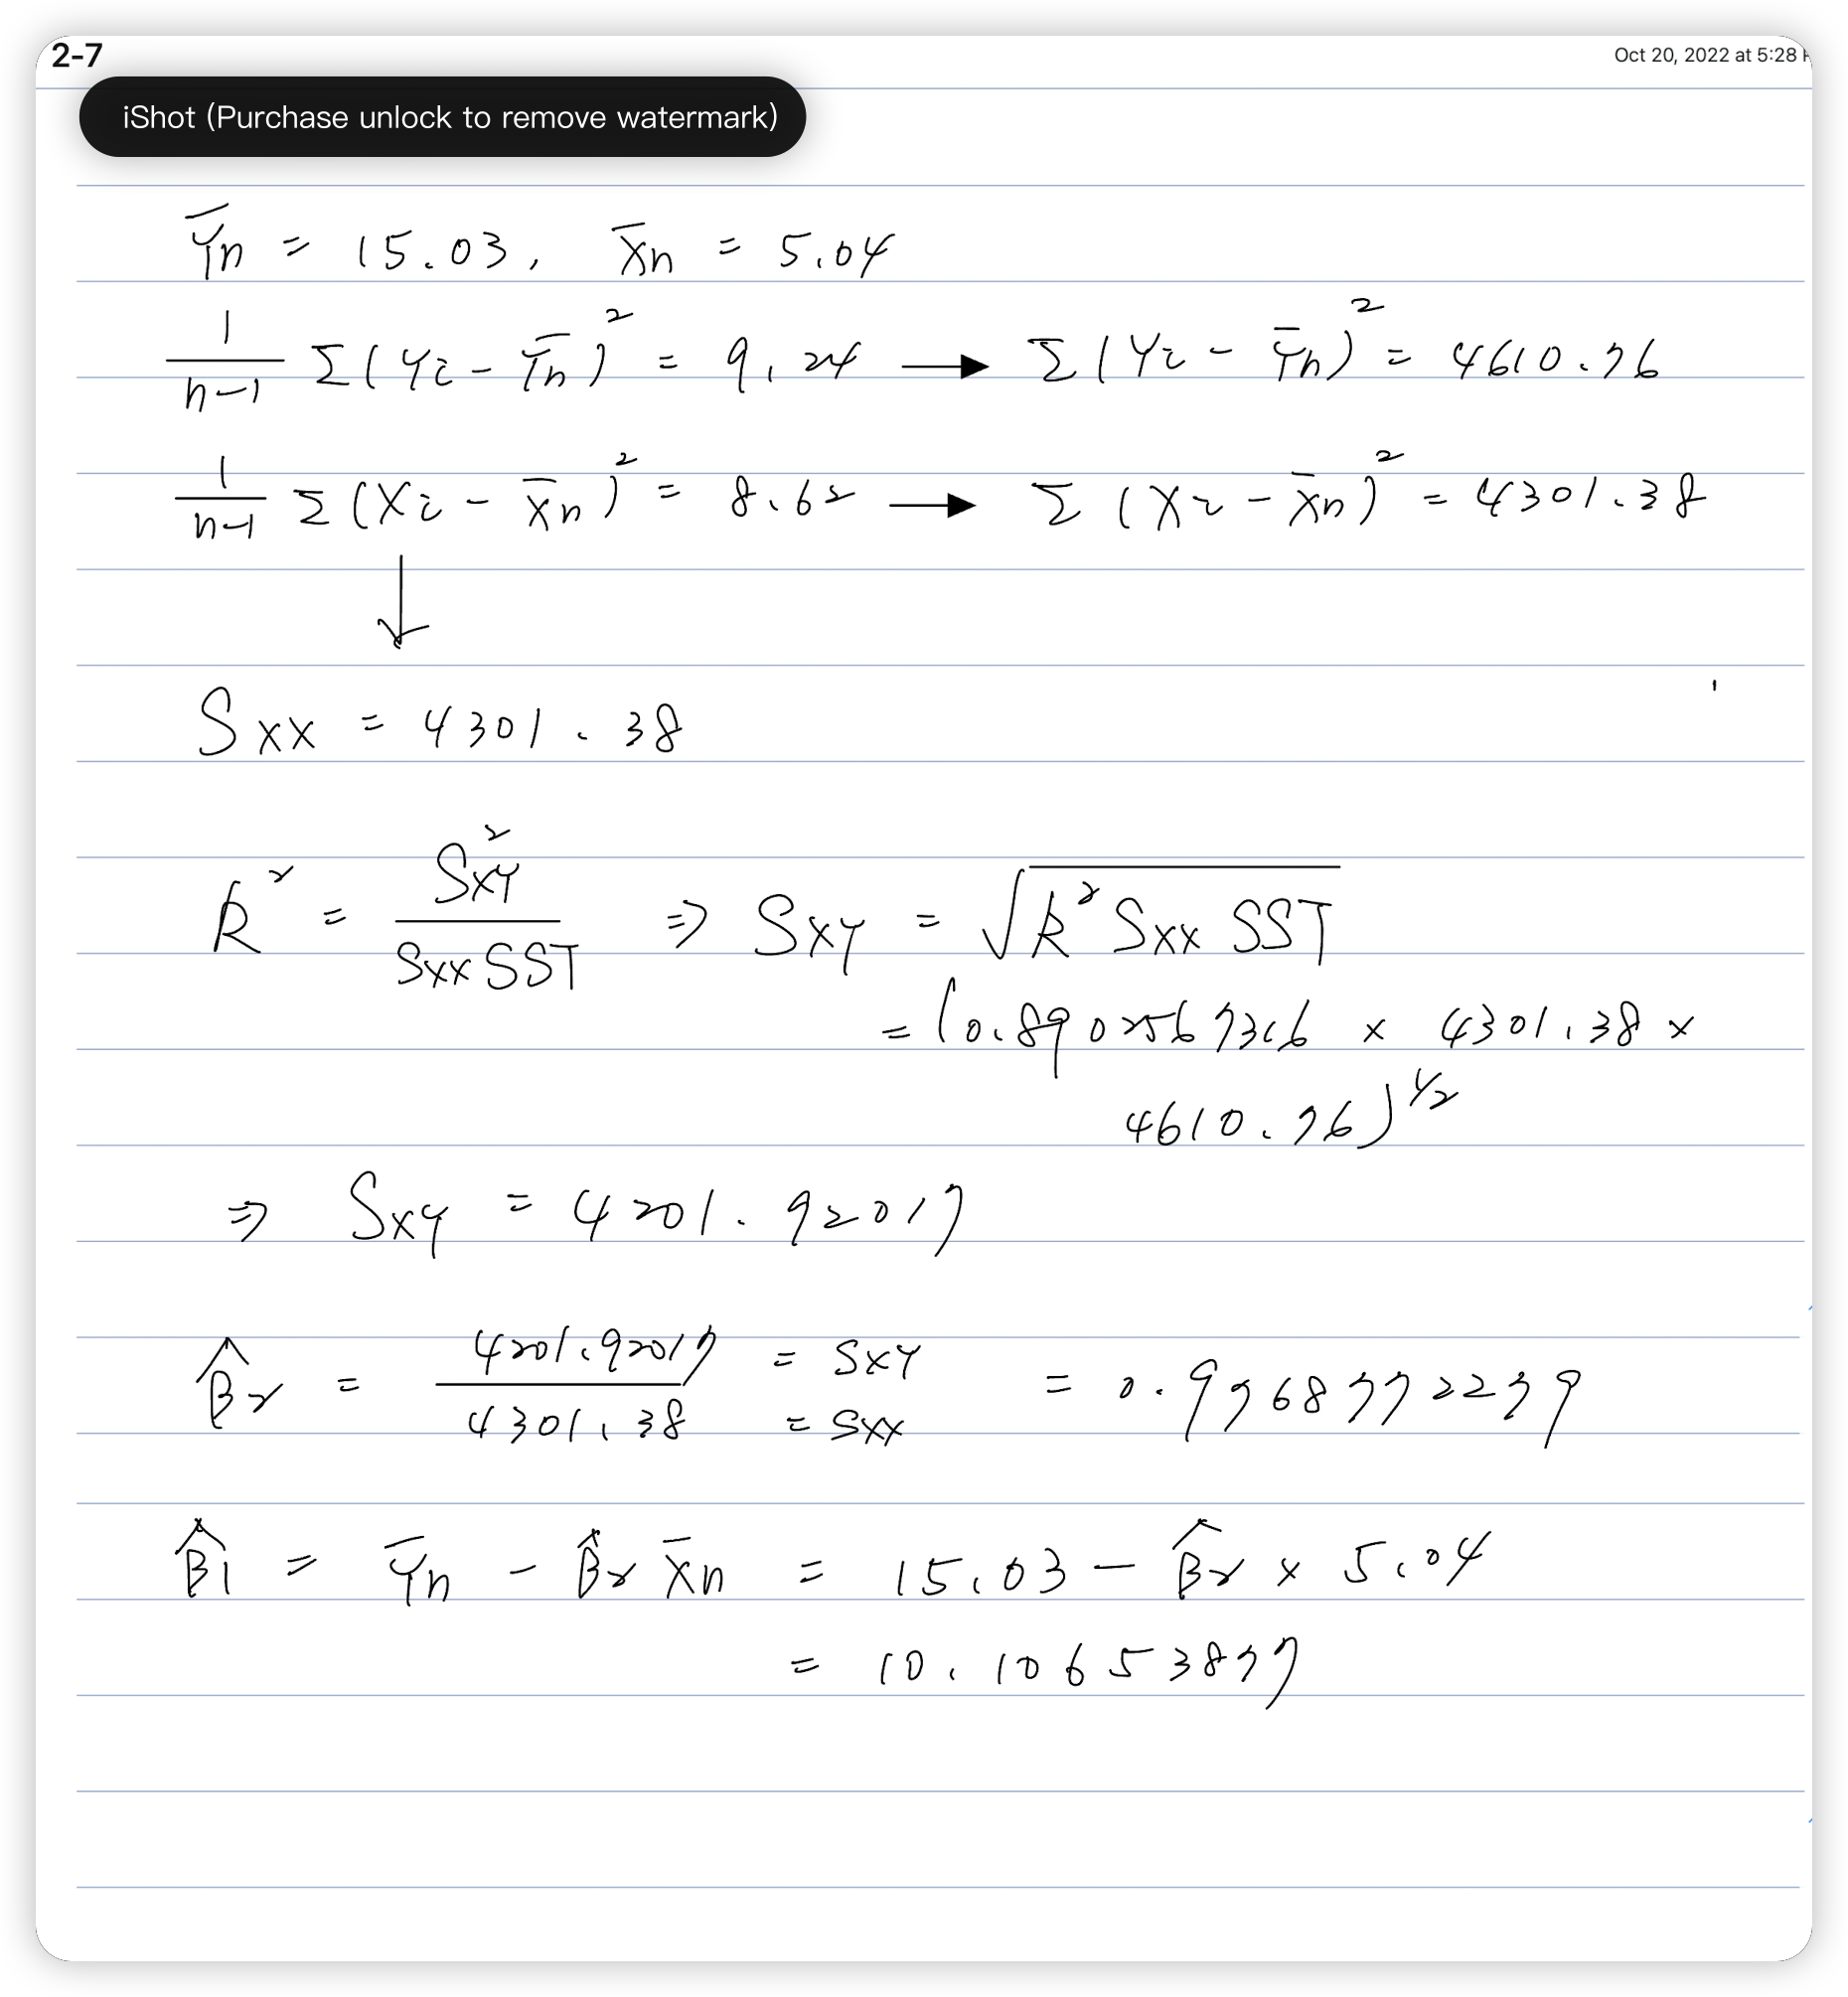 2-7
Oct 20, 2022 at 5:28
iShot (Purchase unlock to remove watermark)
Ȳn = 15.03, X̄n = 5.04
1/(n-1) Σ(Yi - Ȳn)² = 9.24 → Σ(Yi - Ȳn)² = 4610.76
1/(n-1) Σ(Xi - X̄n)² = 8.62 → Σ(Xi - X̄n)² = 4301.38
↓
SXX = 4301.38
R² = SXY² / SXX SST ⇒ SXY = √(R² SXX SST)
= (0.8902567366 × 4301.38 ×
4610.76)^1/2
⇒ SXY = 4201.92017
β̂2 = 4201.92017 / 4301.38 = SXY / = SXX = 0.97687772279
β̂1 = Ȳn - β̂2 X̄n = 15.03 - β̂2 × 5.04
= 10.10653877